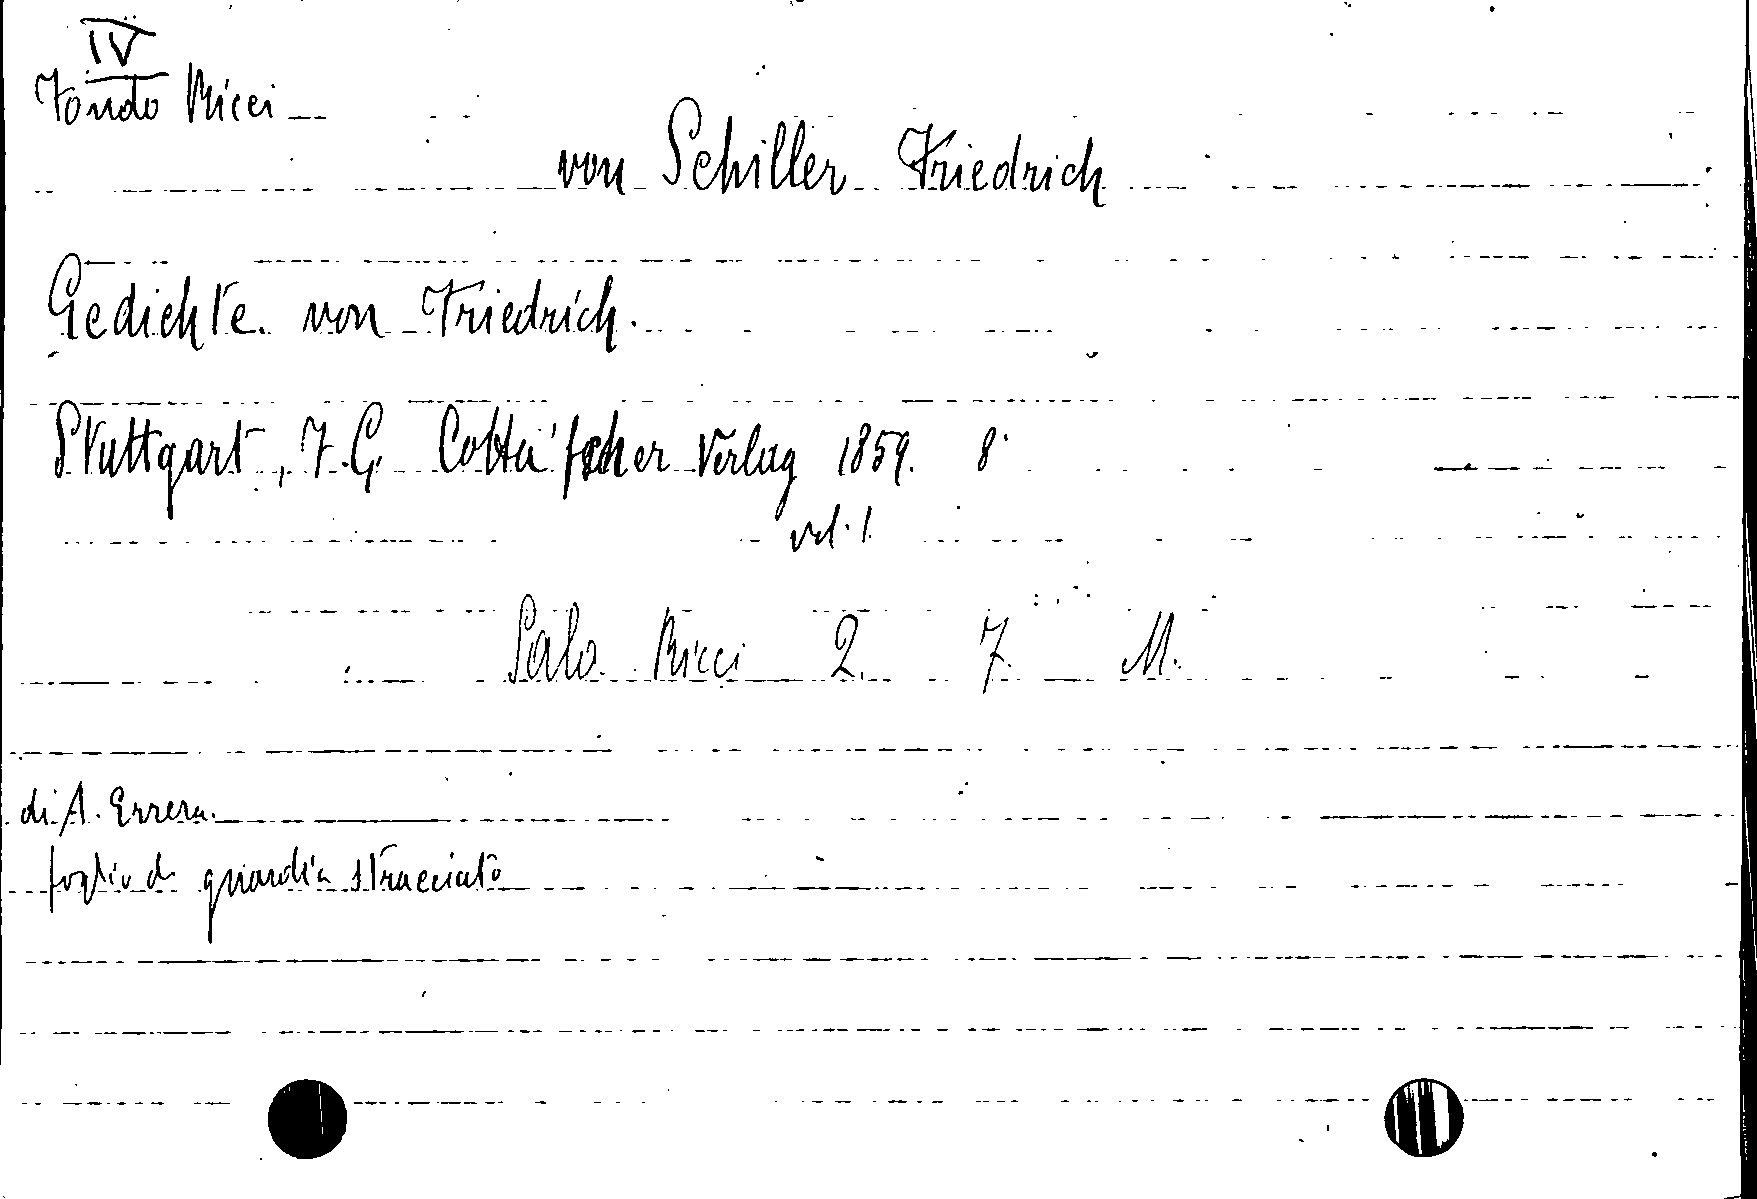 IV
Fondo Ricci
von Schiller Friedrich
Gedichte von Friedrich.
Stuttgart, J.G. Cotta'scher Verlag 1859. 8°
vol. 1.
Sala Ricci 2. 7. M.
di A. Errera.
foglio di guardia stracciato